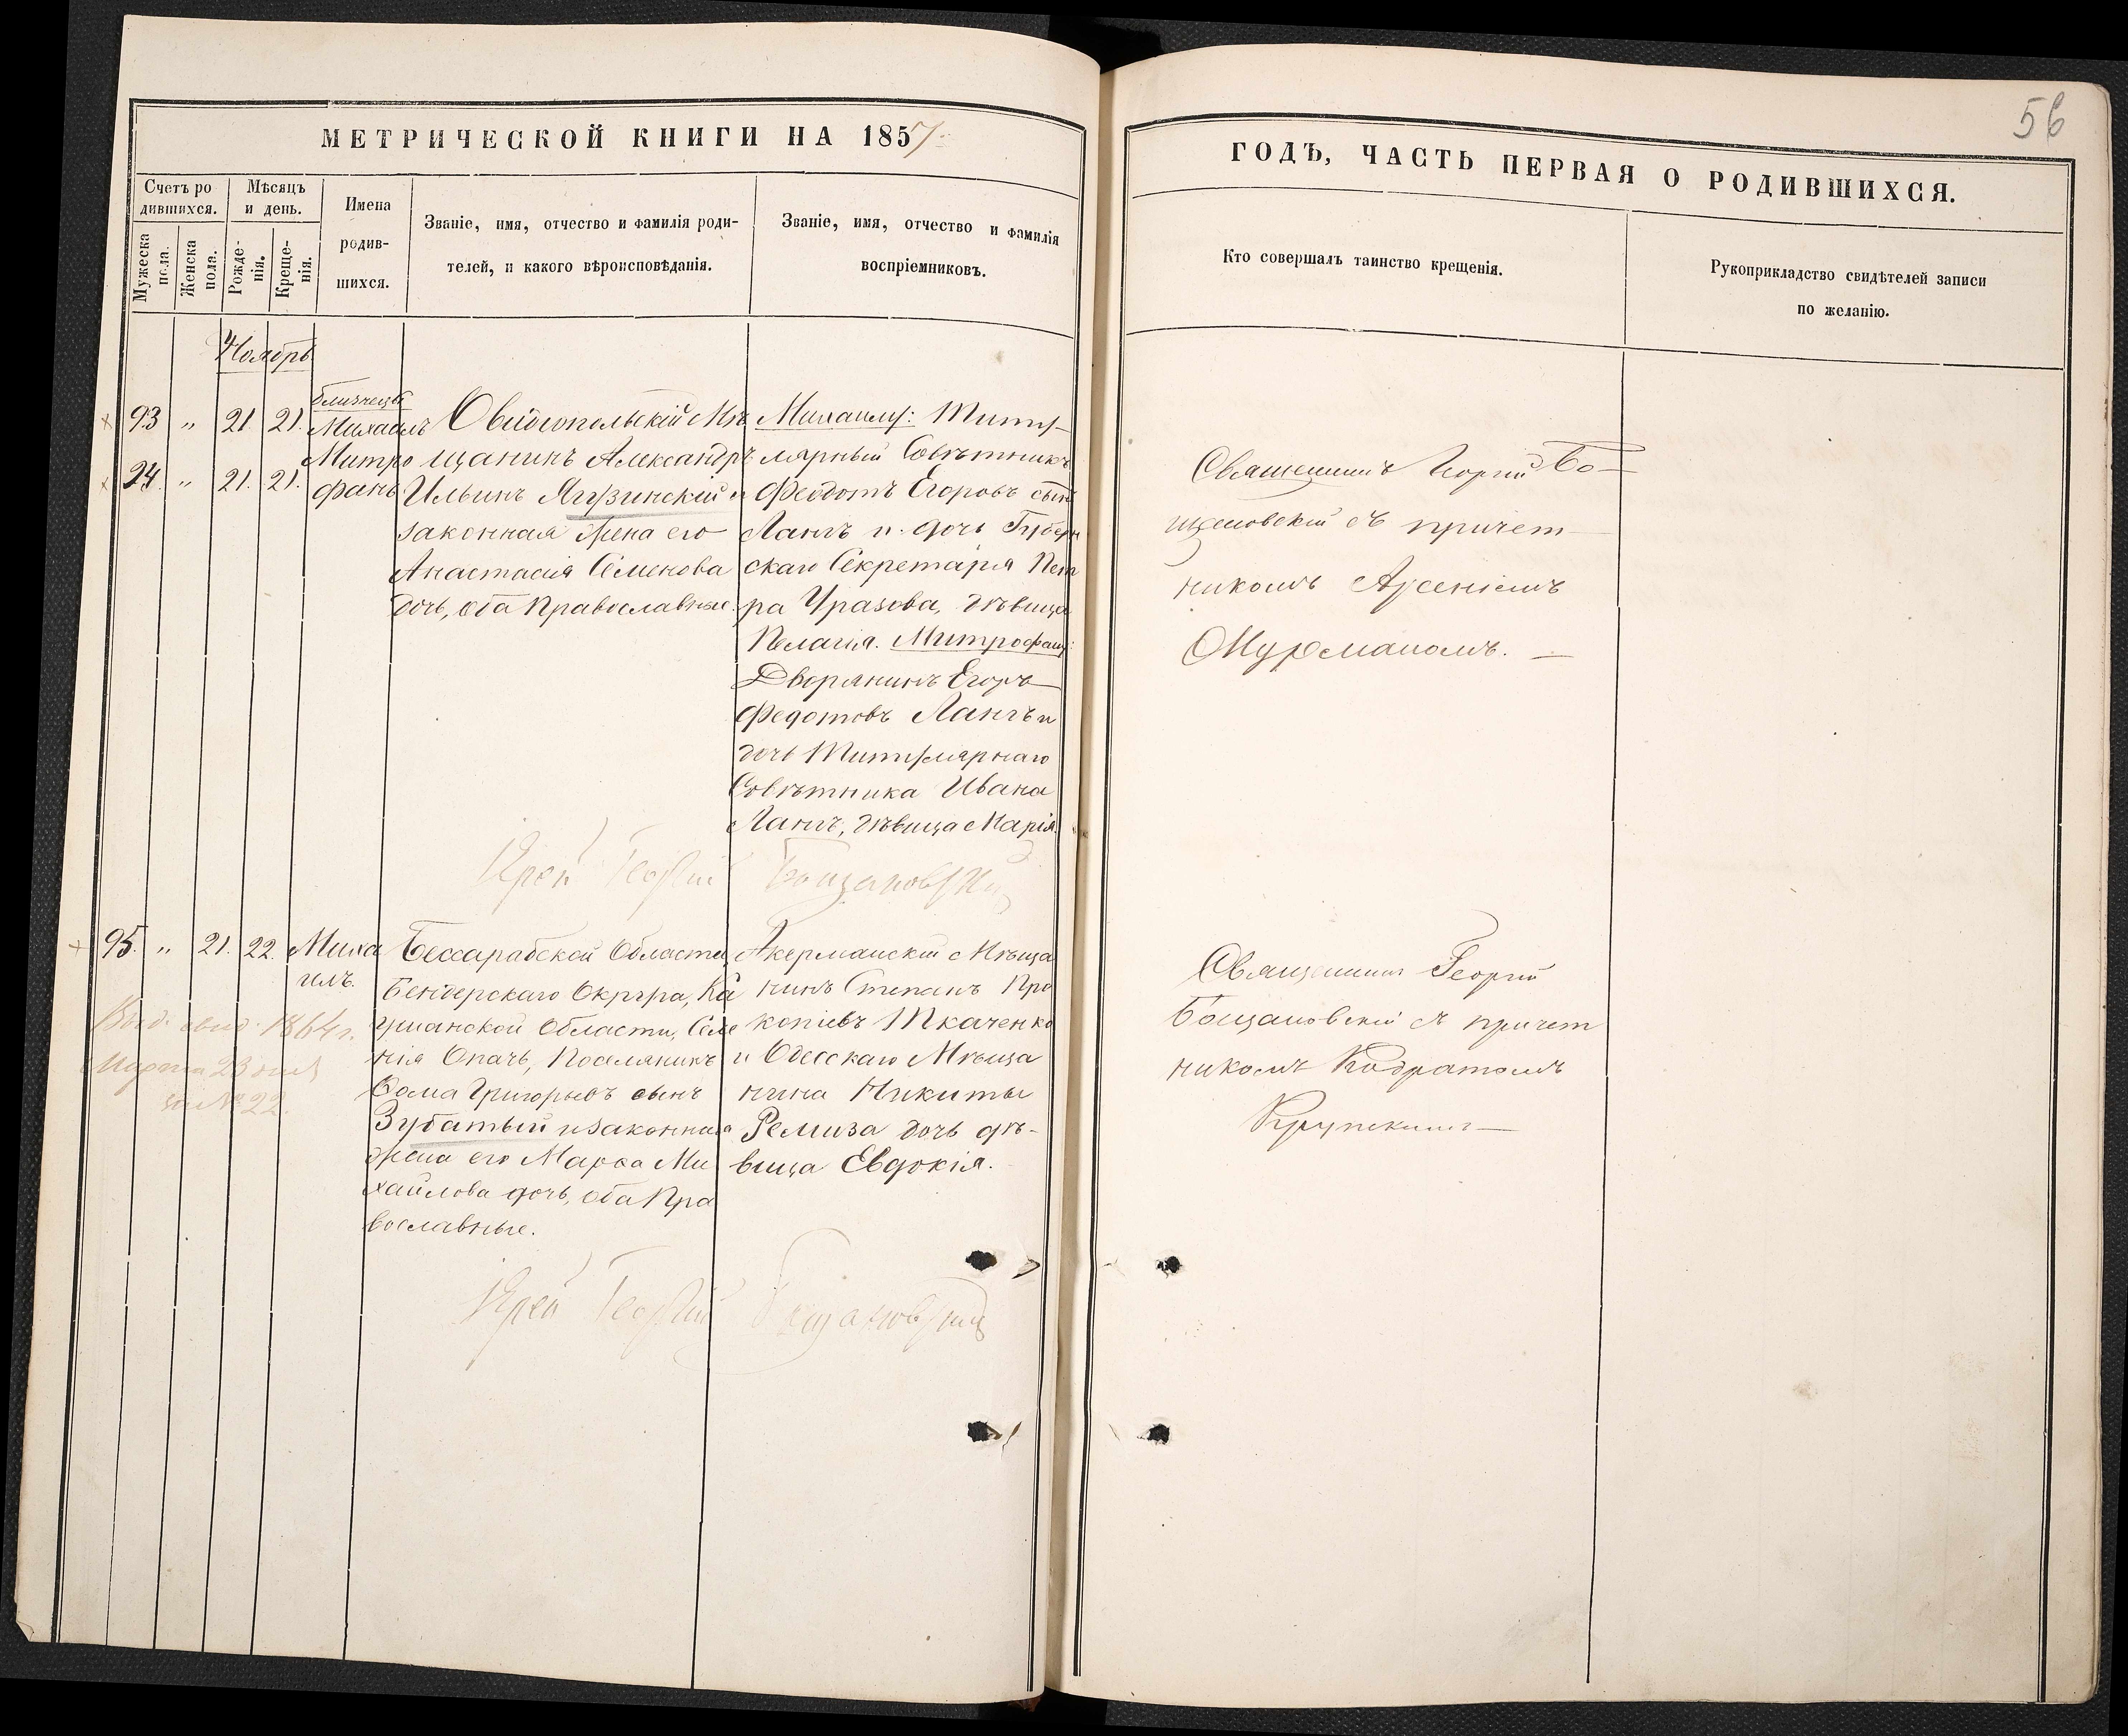 56
МЕТРИЧЕСКОЙ КНИГИ НА 1857.
ГОДЪ, ЧАСТЬ ПЕРВАЯ О РОДИВШИХСЯ.
Счетъ ро
дившихся.
Мужеска
пола.
Женска
пола.
Мѣсяцъ
и день.
Рожде-
нія.
Креще-
нія.
Имена
родив-
шихся.
Званіе, имя, отчество и фамилія роди-
телей, и какого вѣроисповѣданія.
Званіе, имя, отчество и фамилія
воспріемниковъ.
Кто совершалъ таинство крещенія.
Рукоприкладство свидѣтелей записи
по желанію.
Ноябрь
93 " 21 21.
94. " 21. 21.
близнецы
Михаилъ
Митро
фанъ
Овидіопольскій Мѣ
щанинъ Александръ
Ильинъ Ягузинскій и
законная жена его
Анастасія Семенова
дочь, оба Православные.
Михаилу: Титу-
лярный Совѣтникъ
Феодотъ Егоровъ сынъ
Лангъ и дочь Губерн
скаго Секретаря Пет
ра Уразова, дѣвица
Пелагія. Митрофану:
Дворянинъ Егоръ
Федотовъ Лангъ и
дочь Титулярнаго
Совѣтника Ивана
Лангъ, дѣвица Марія.
Священникъ Георгій Бо-
щановскій съ причет-
никомъ Арсеніемъ
Мурманомъ. —
Іерей Георгій Бощановскій
95. " 21. 22.
Миха
илъ.
Выд. свид. 1864 г.
Марта 23 дня
за № 22.
Бессарабской Области,
Бендерскаго Округа, Ка
ушанской Области, Селе
нія Опачь, Поселянинъ
Фома Григорьевъ сынъ
Зубатый и законная
жена его Марфа Ми
хайлова дочь, оба Пра
вославные.
Акерманскій Мѣща
нинъ Степанъ Про
копіевъ Ткаченко
и Одесскаго Мѣща
нина Никиты
Ремиза дочь дѣ-
вица Евдокія.
Священникъ Георгій
Бощановскій съ причет
никомъ Кодратомъ
Крупскимъ —
Іерей Георгій Бощановскій